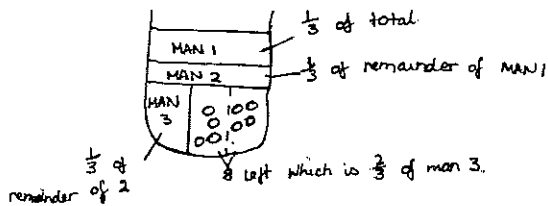 1/3 of total.
MAN 1
MAN 2
1/3 of remainder of MAN 1
MAN
3
1/3 of
remainder
of 2
8 left which is 2/3 of man 3.